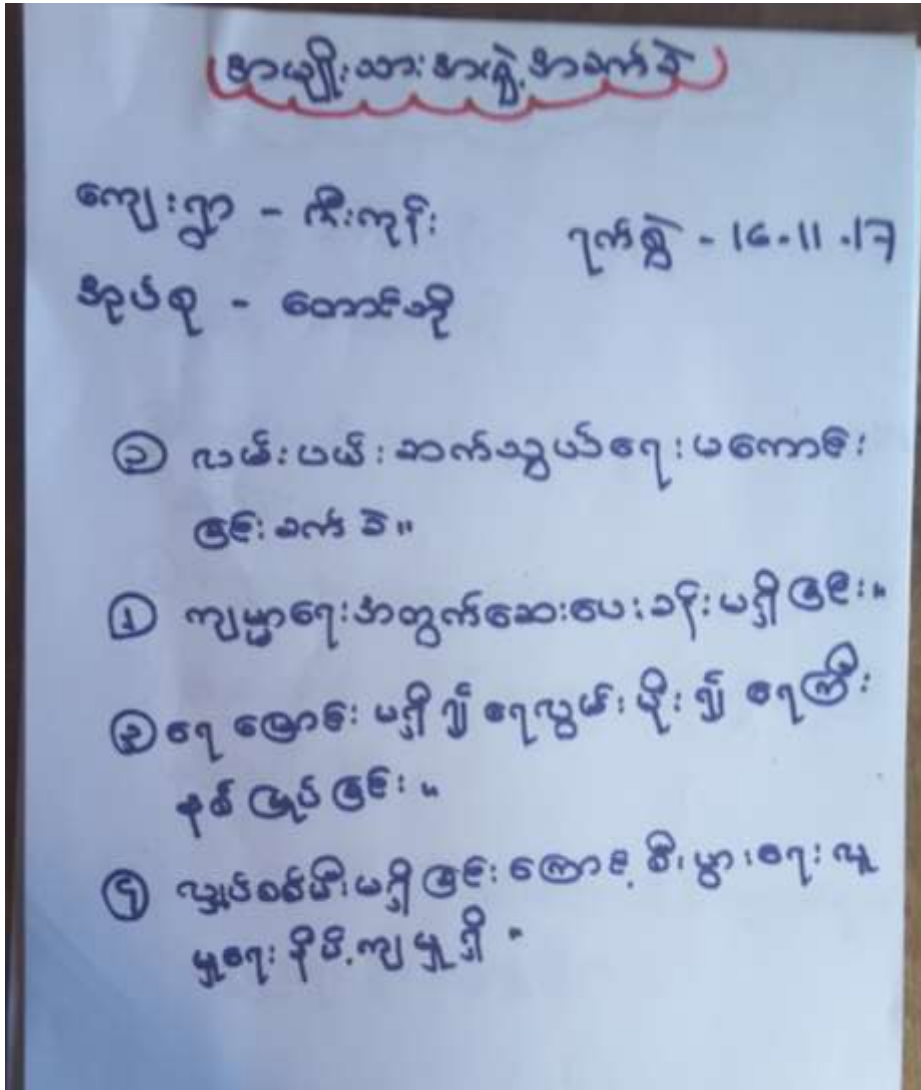 အမျိုးသားအဖွဲ့အခက်ခဲ
ကျေးရွာ - ကီးကုန်း
ရက်စွဲ - 16.11.17
အုပ်စု - တောင်ဘို
၁ လမ်းပမ်းဆက်သွယ်ရေးမကောင်း
ခြင်းခက်ခဲ။
၂ ကျမ္မာရေးအတွက်ဆေးပေးခန်းမရှိခြင်း။
၃ ရေမြောင်းမရှိ၍ ရေလွှမ်းမိုး၍ ရေကြီး
နစ်မြုပ်ခြင်း။
၄ လျှပ်စစ်မီးမရှိခြင်းကြောင့် စီးပွားရေး လူ
မှုရေး နိမ့်ကျမှုရှိ။